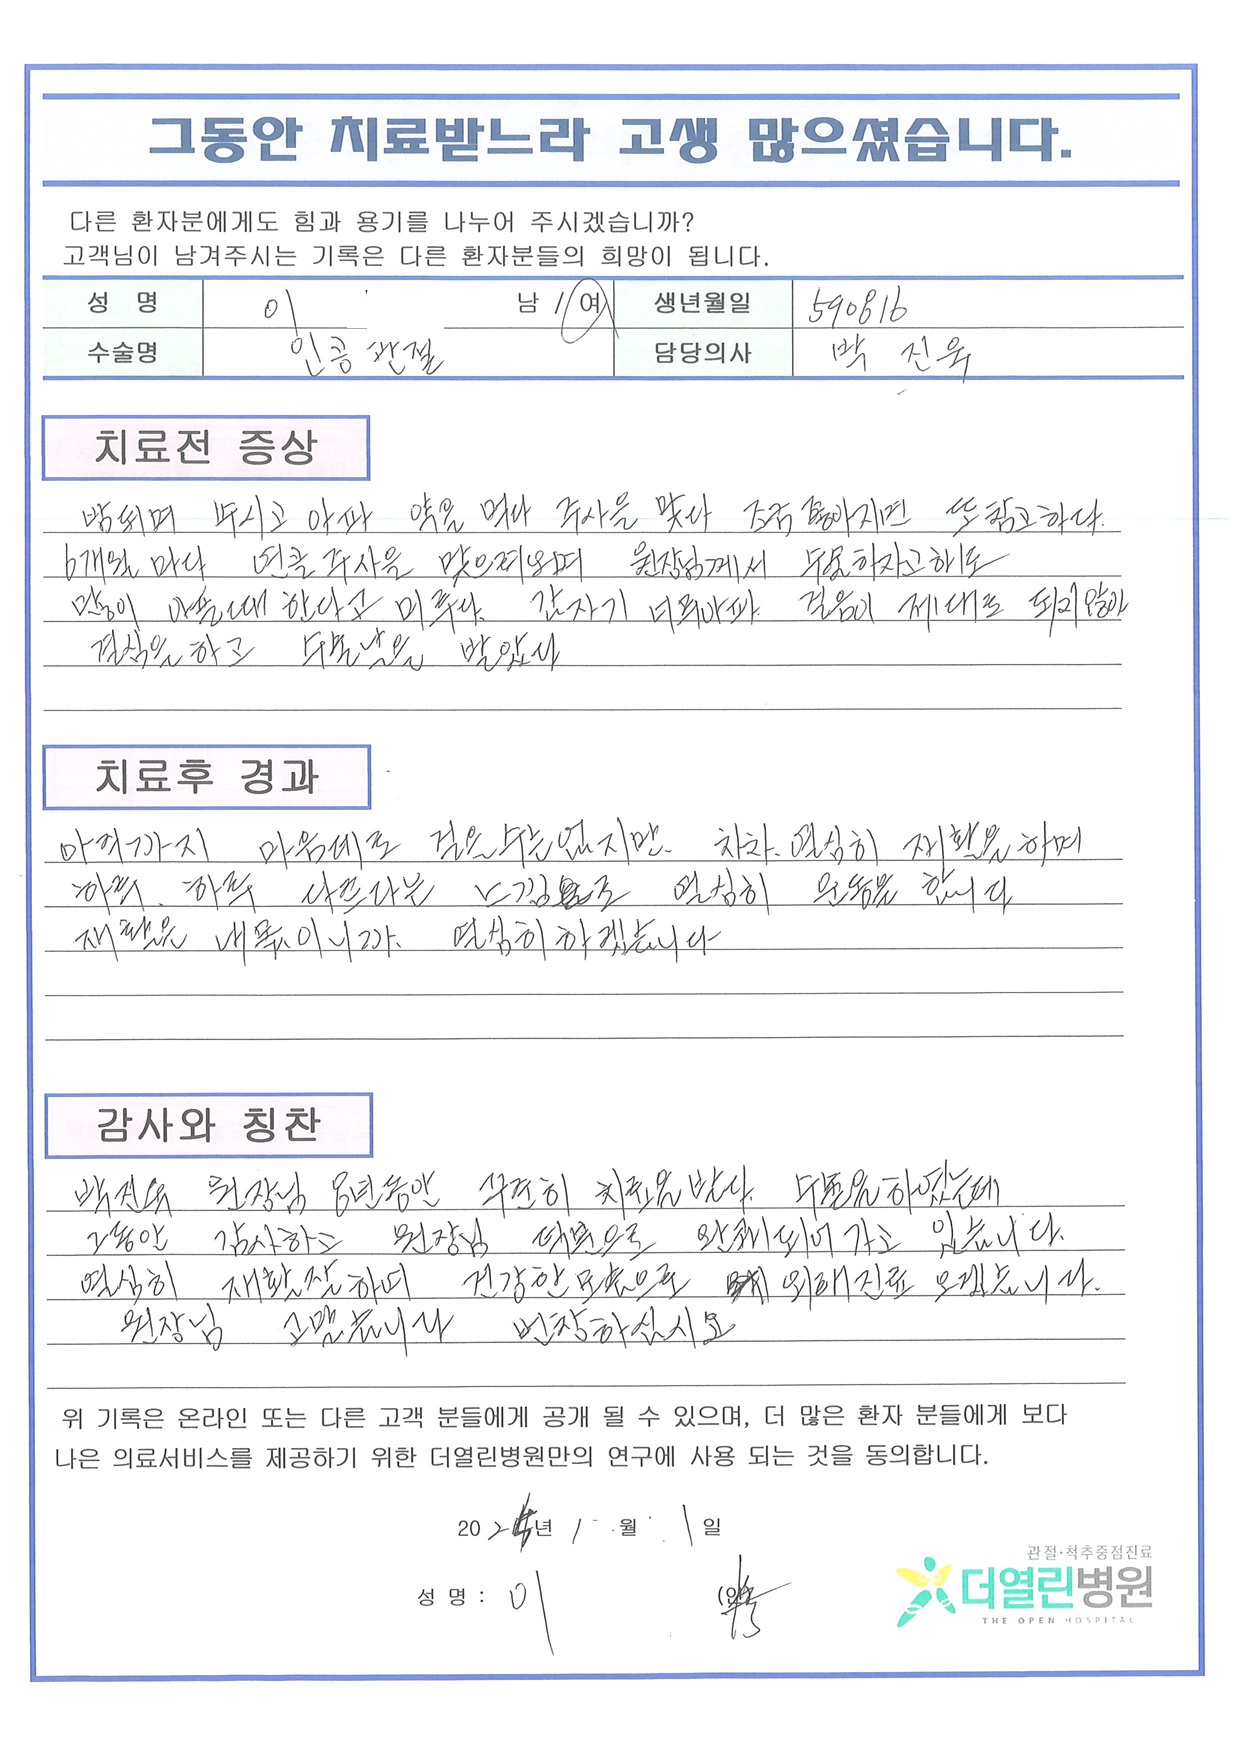 그동안 치료받느라 고생 많으셨습니다.
다른 환자분에게도 힘과 용기를 나누어 주시겠습니까?
고객님이 남겨주시는 기록은 다른 환자분들의 희망이 됩니다.
성 명 이 남 / 여 생년월일 590816
수술명 인공관절 담당의사 박진욱
치료전 증상
밤되며 쑤시고 아파 약을 먹다 주사을 맞다 조금 좋아지면 또 참고하다.
6개월 마다 연골주사을 맞으며 원장님께서 수술하자고해도
많이 아플때 한다고 미루다. 갑자기 너무아파 걸음이 제대로 되지않아
결심을하고 수술날을 받았다
치료후 경과
아직까지 마음데로 걸을수는없지만. 차차. 열심히 재활을하며
하루. 하루 다르다는 느낌으로 열심히 운동을 합니다
재활은 내몫이니까. 열심히하겠습니다
감사와 칭찬
박진욱 원장님 8년동안 꾸준히 치료을받다. 수술을하였는데
그동안 감사하고 원장님 덕분으로 완쾌되어가고 있습니다.
열심히 재활잘하며 건강한모습으로 외래진료 오겠습니다.
원장님 고맙습니다 번창하십시오
위 기록은 온라인 또는 다른 고객 분들에게 공개 될 수 있으며, 더 많은 환자 분들에게 보다
나은 의료서비스를 제공하기 위한 더열린병원만의 연구에 사용 되는 것을 동의합니다.
202 년 1 월 1 일
성 명 : 이 (인)
관절·척추중점진료
더열린병원
THE OPEN HOSPITAL